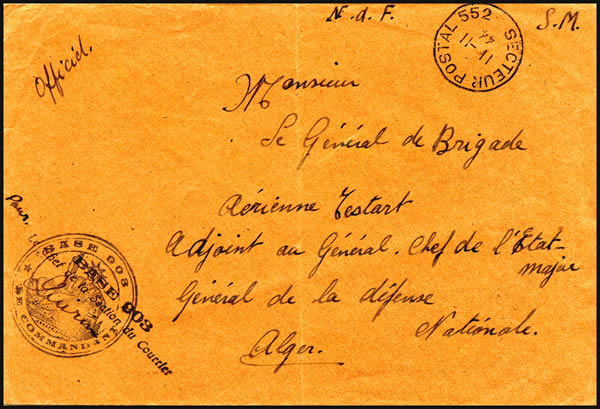 N. d. F.
S.M.
Officiel.
SECTEUR POSTAL 552
11-11
44
Monsieur
Le Général de Brigade
Aérienne Testart
Adjoint au Général. Chef de l'État-
major
Général de la défense
Nationale.
Alger.
BASE 903
LE COMMANDANT
Pour le Chef de la Station du Courrier
BASE 903